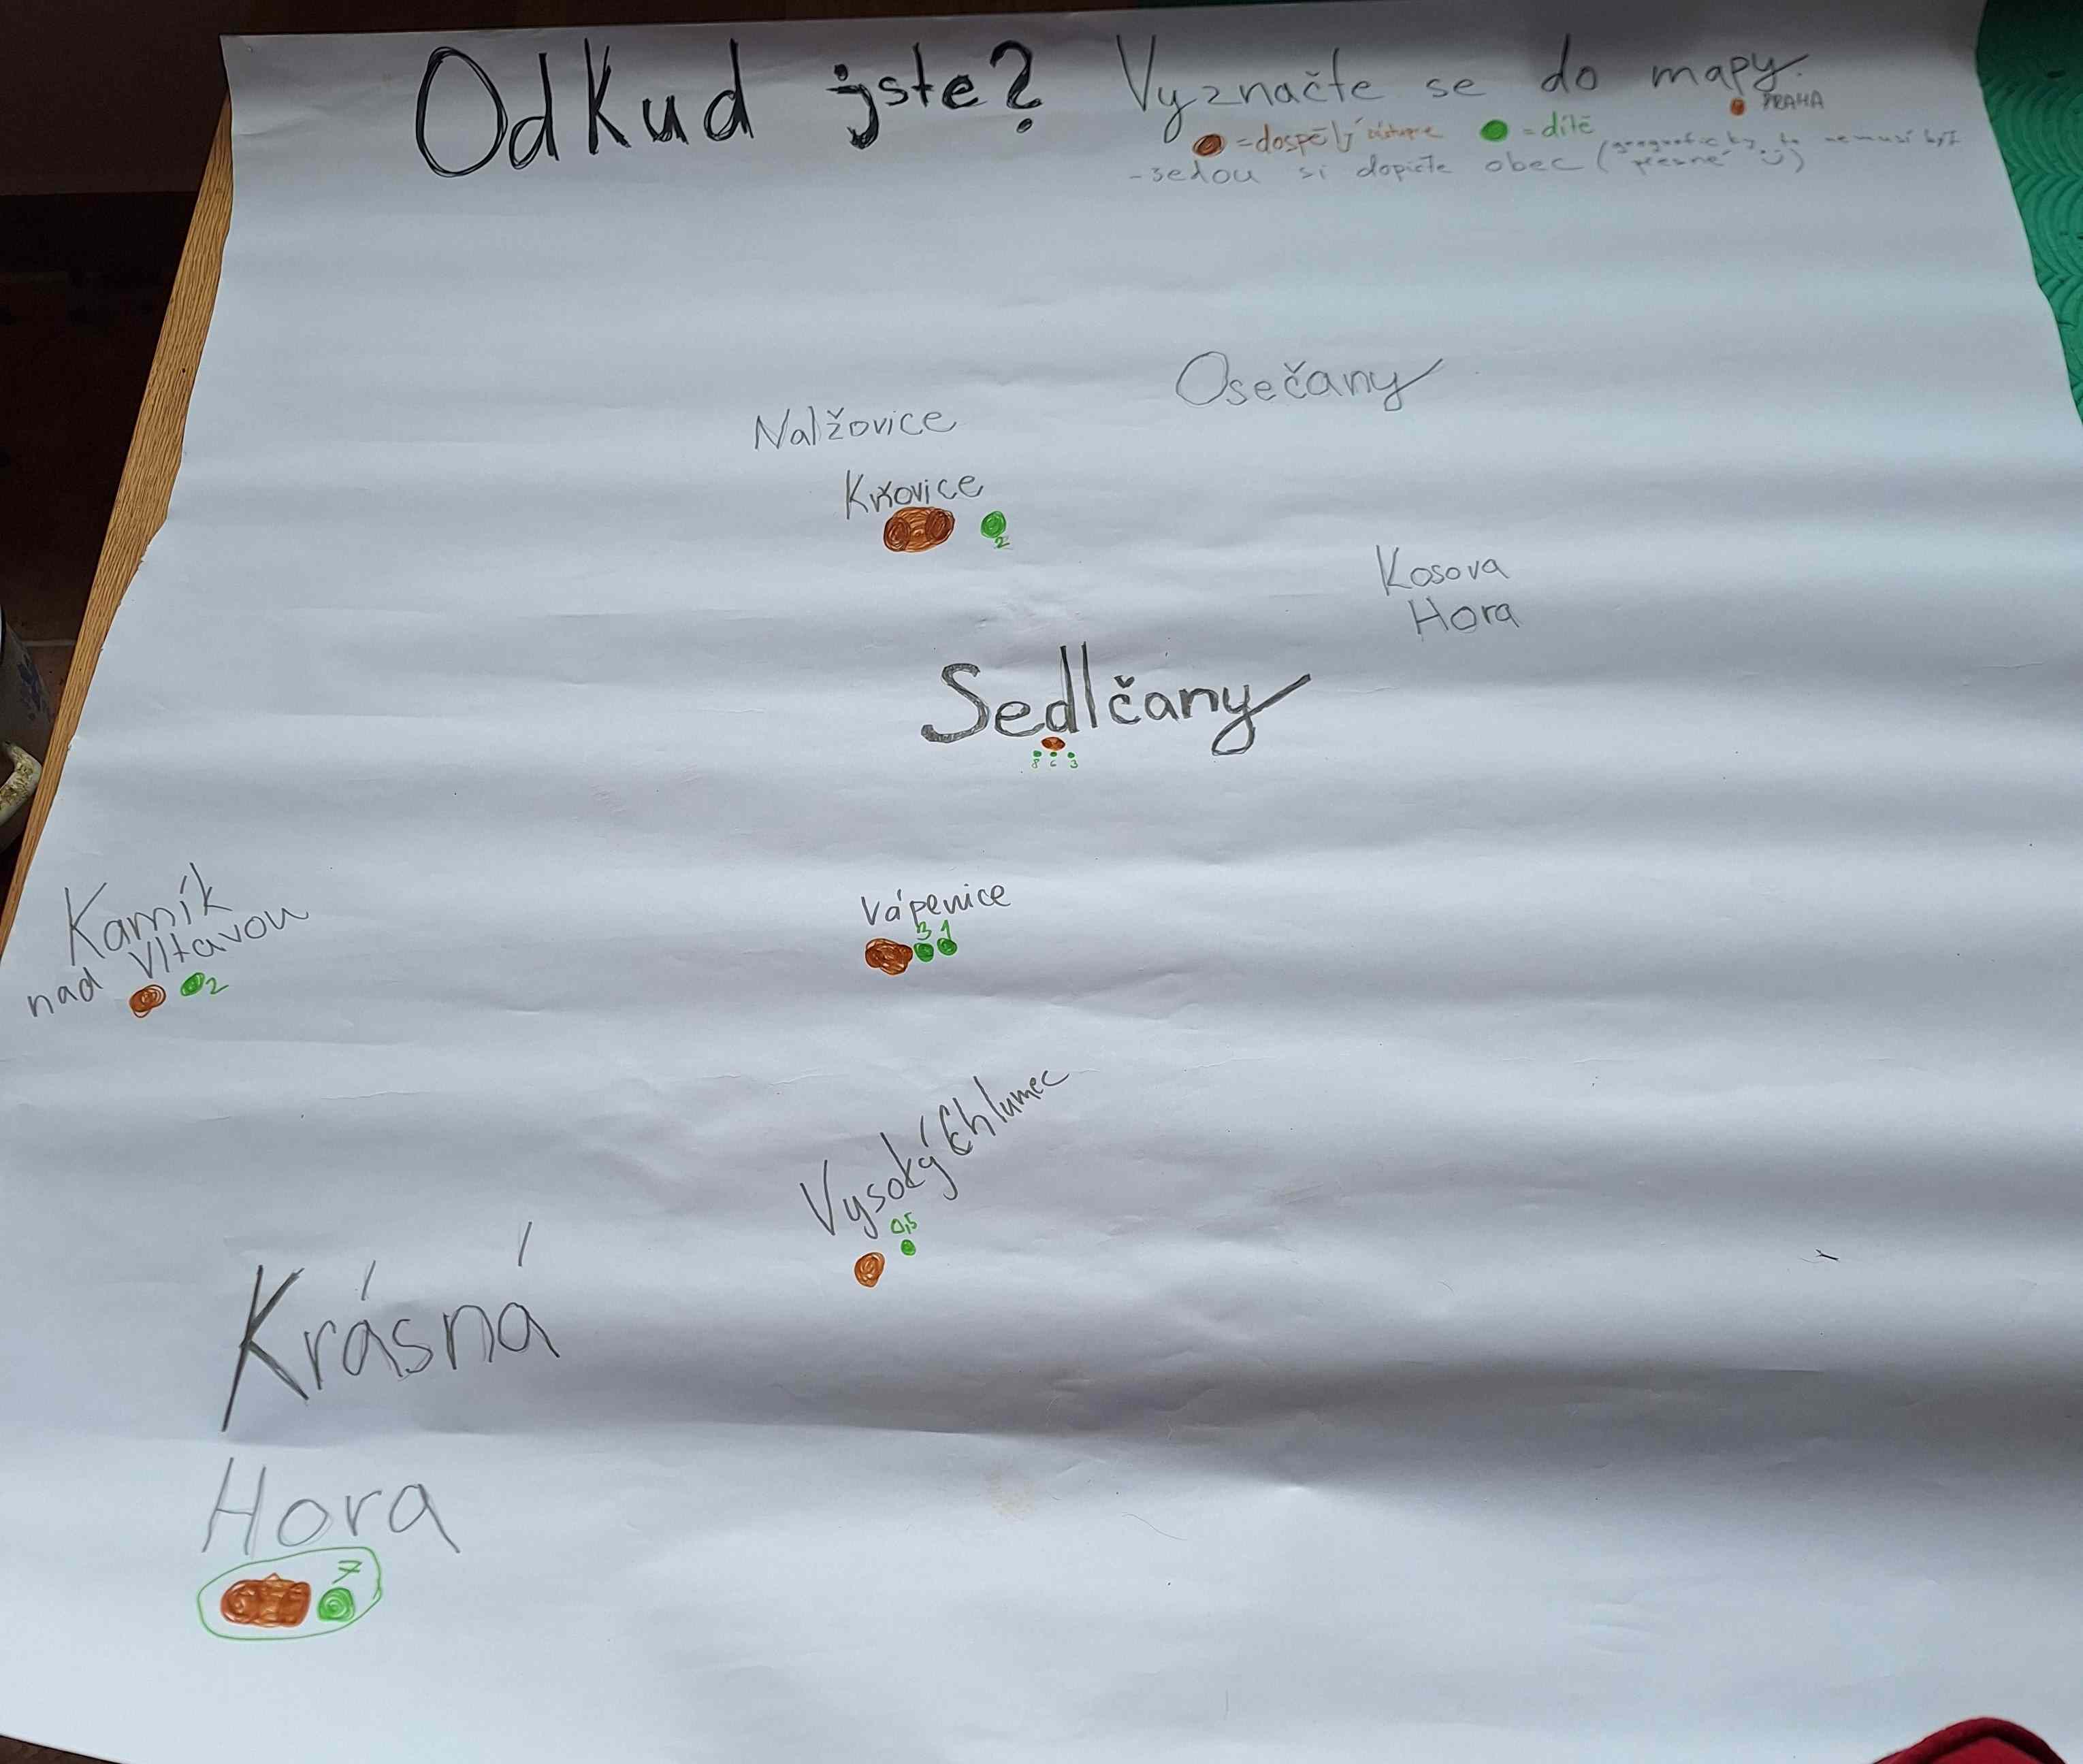 Odkud jste? Vyznačte se do mapy.
PRAHA
=dospělý zástupce =dítě
-šedou si dopište obec (geograficky to nemusí být přesné)
Osečany
Nalžovice
Křovice
2
Kosova
Hora
Sedlčany
8 6 3
Kamík
nad Vltavou
2
Vápenice
3 1
Vysoký Chlumec
0,5
Krásná
Hora
7